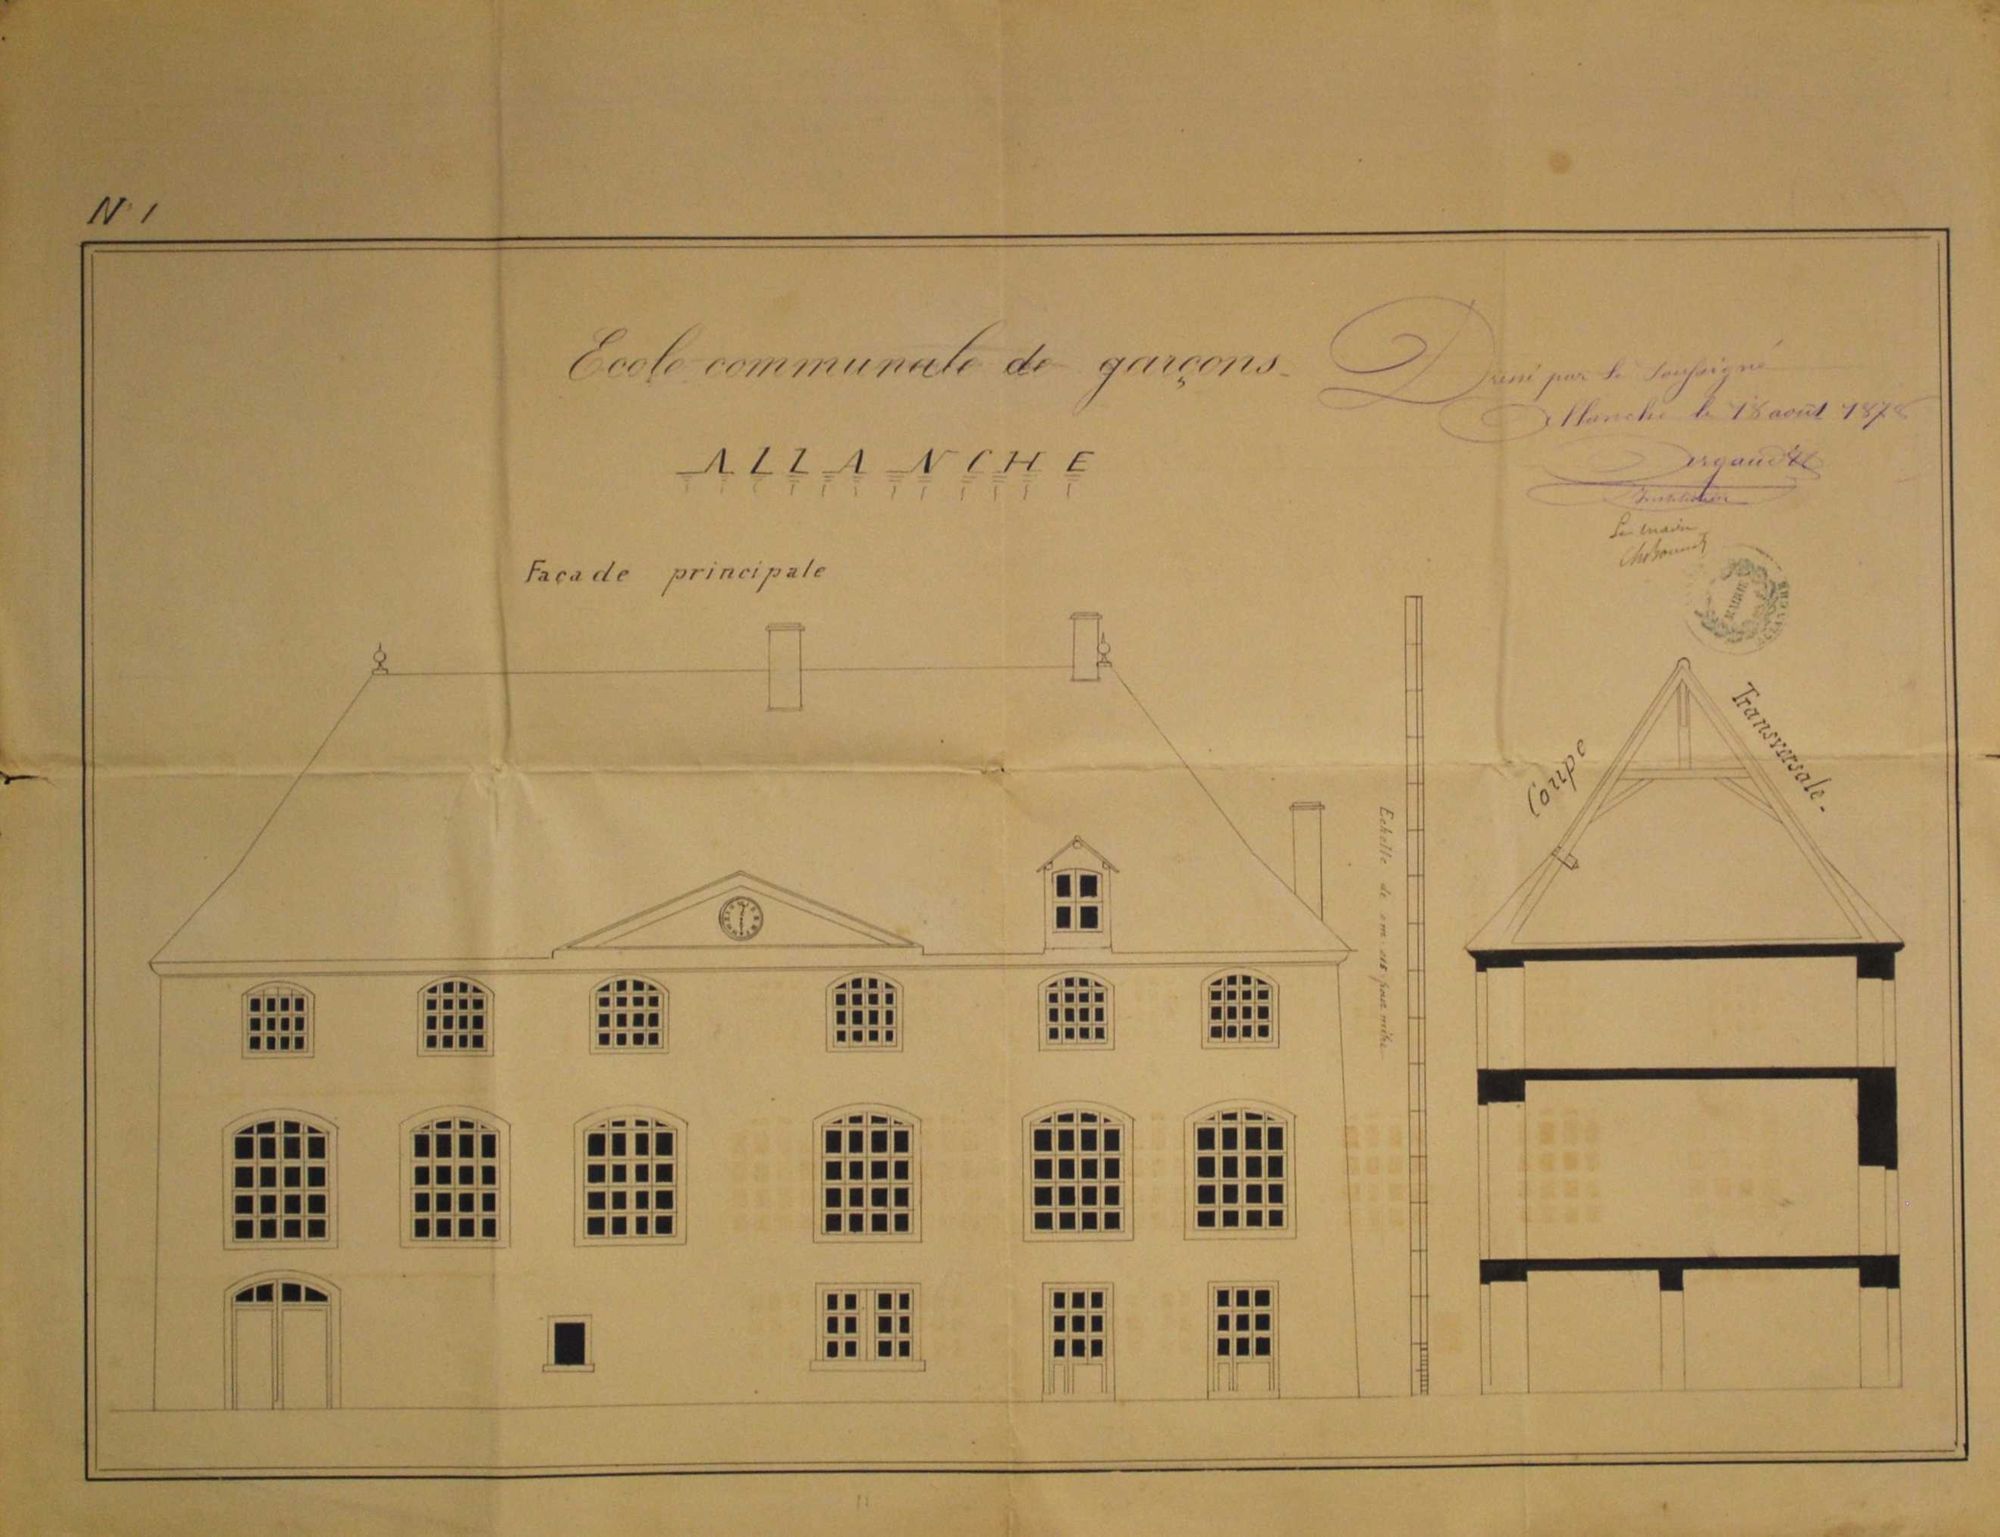 N° 1
Ecole communale de garçons.
ALLANCHE
Façade principale
par le soussigné
Allanche le 18 août 1878
Instituteur
Le maire
MAIRIE
Coupe
Transversale.
Echelle de 0m 01 pour mètre